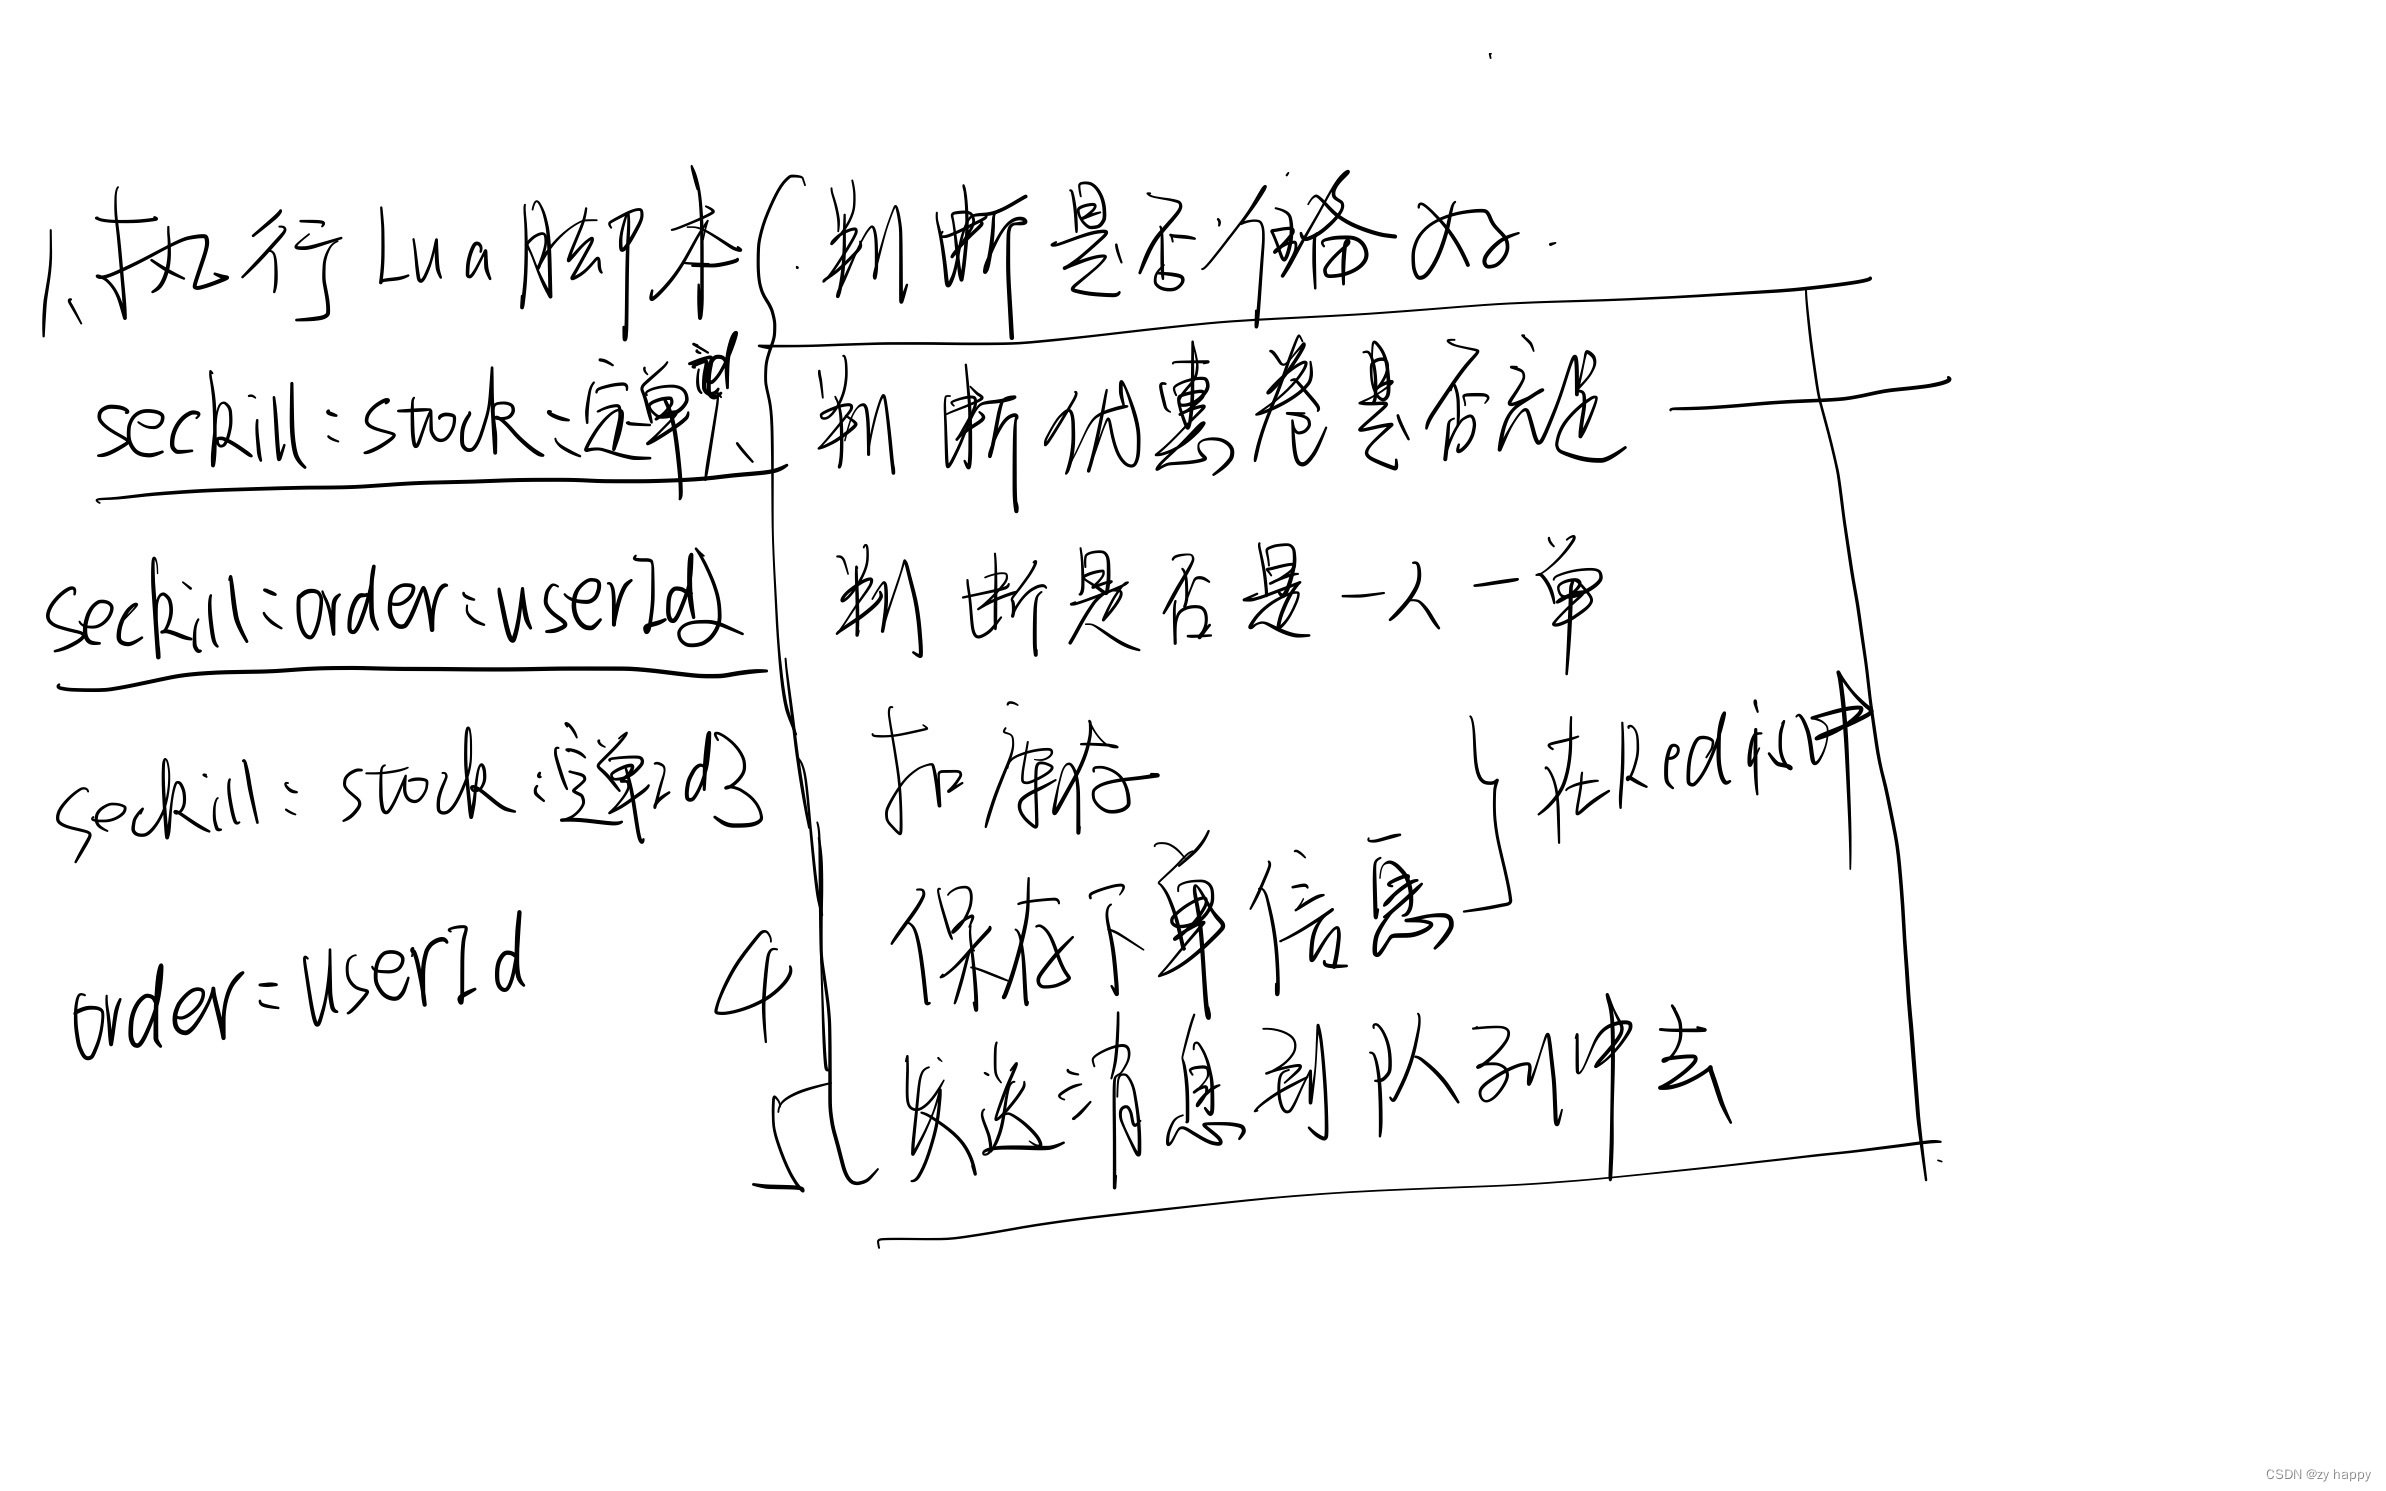 1、执行Lua脚本 判断是否储次
seckill:stock:选单
判断优惠卷是否充
seckill:order:userId
判断是否是一人一单
seckill:stock:
扣库存
在Redis中
保存下单信息
order:userId
4
5 发送消息到队列中去
CSDN @zy happy